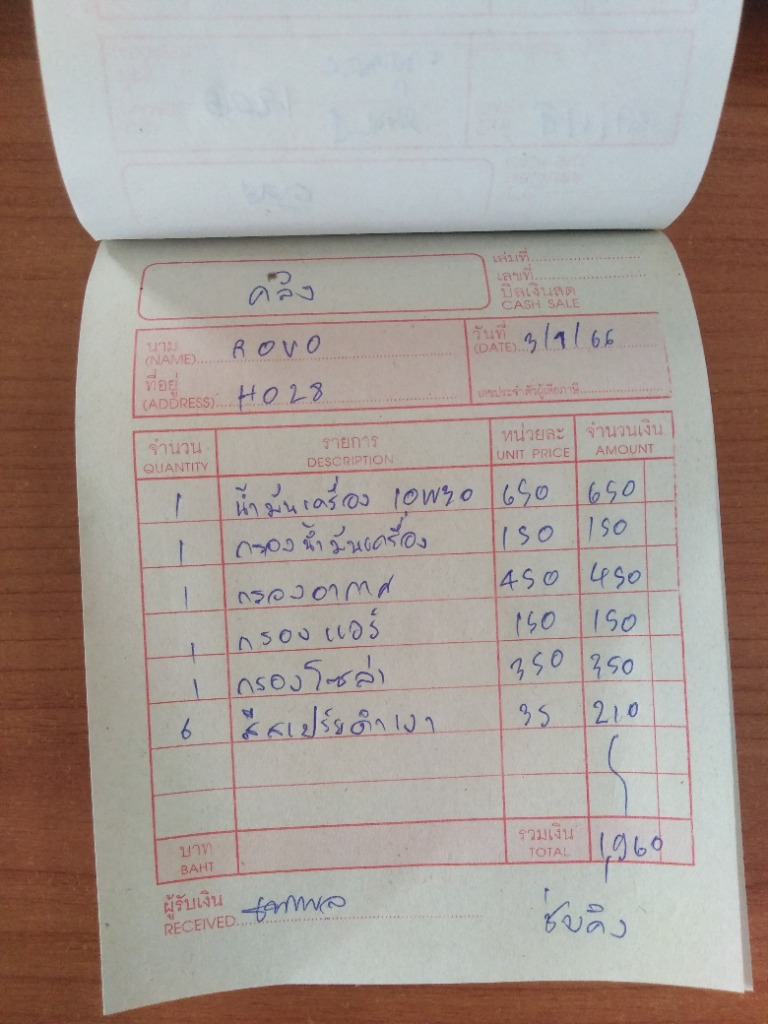 เล่มที่
เลขที่
บิลเงินสด
CASH SALE
คลัง
นาม
(NAME) ROVO
วันที่
(DATE) 3/9/66
ที่อยู่
(ADDRESS) HO28
เลขประจำตัวผู้เสียภาษี
จำนวน รายการ หน่วยละ จำนวนเงิน
QUANTITY DESCRIPTION UNIT PRICE AMOUNT
1 น้ำมันเครื่อง 10W30 650 650
1 กรองน้ำมันเครื่อง 150 150
1 กรองอากาศ 450 450
1 กรองแอร์ 150 150
1 กรองโซล่า 350 350
6 สีสเปรย์ดำเงา 35 210
บาท รวมเงิน 1,960
BAHT TOTAL
ผู้รับเงิน
RECEIVED